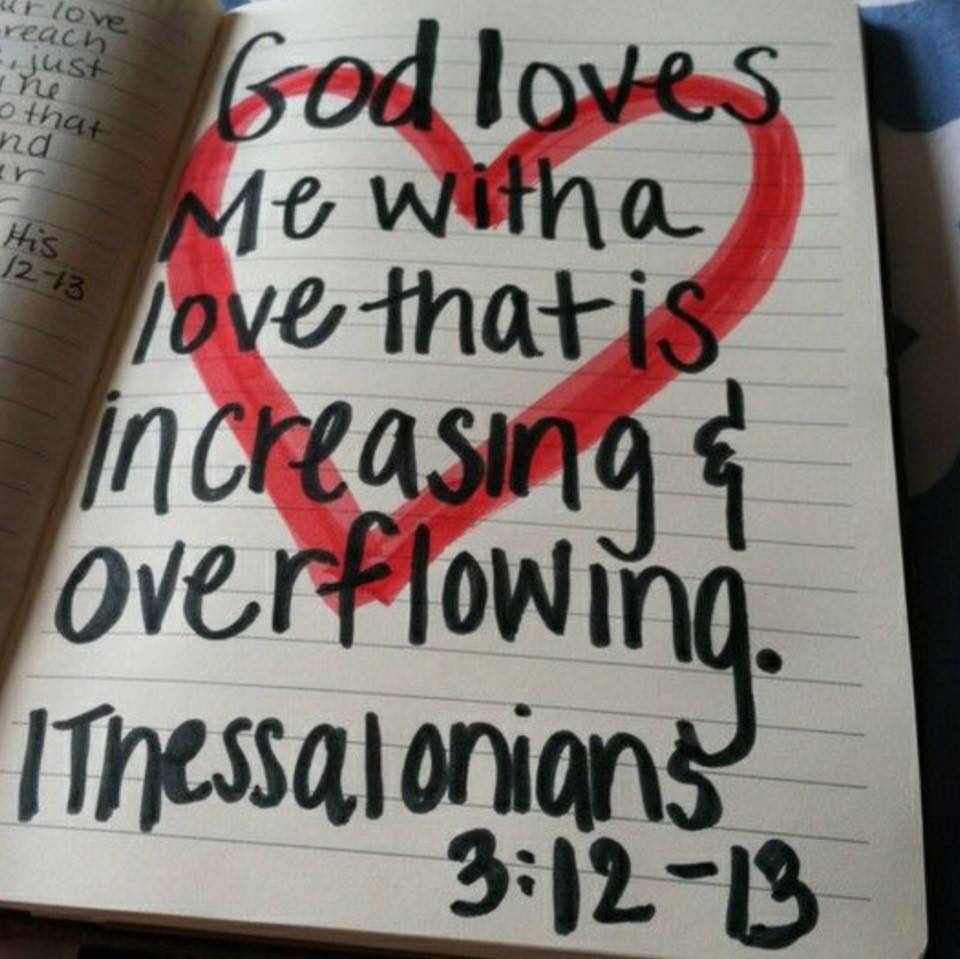 ur love
reach
just
the
o that
nd
ur
His
12-13
God loves
Me with a
love that is
increasing &
overflowing.
1 Thessalonians
3:12-13